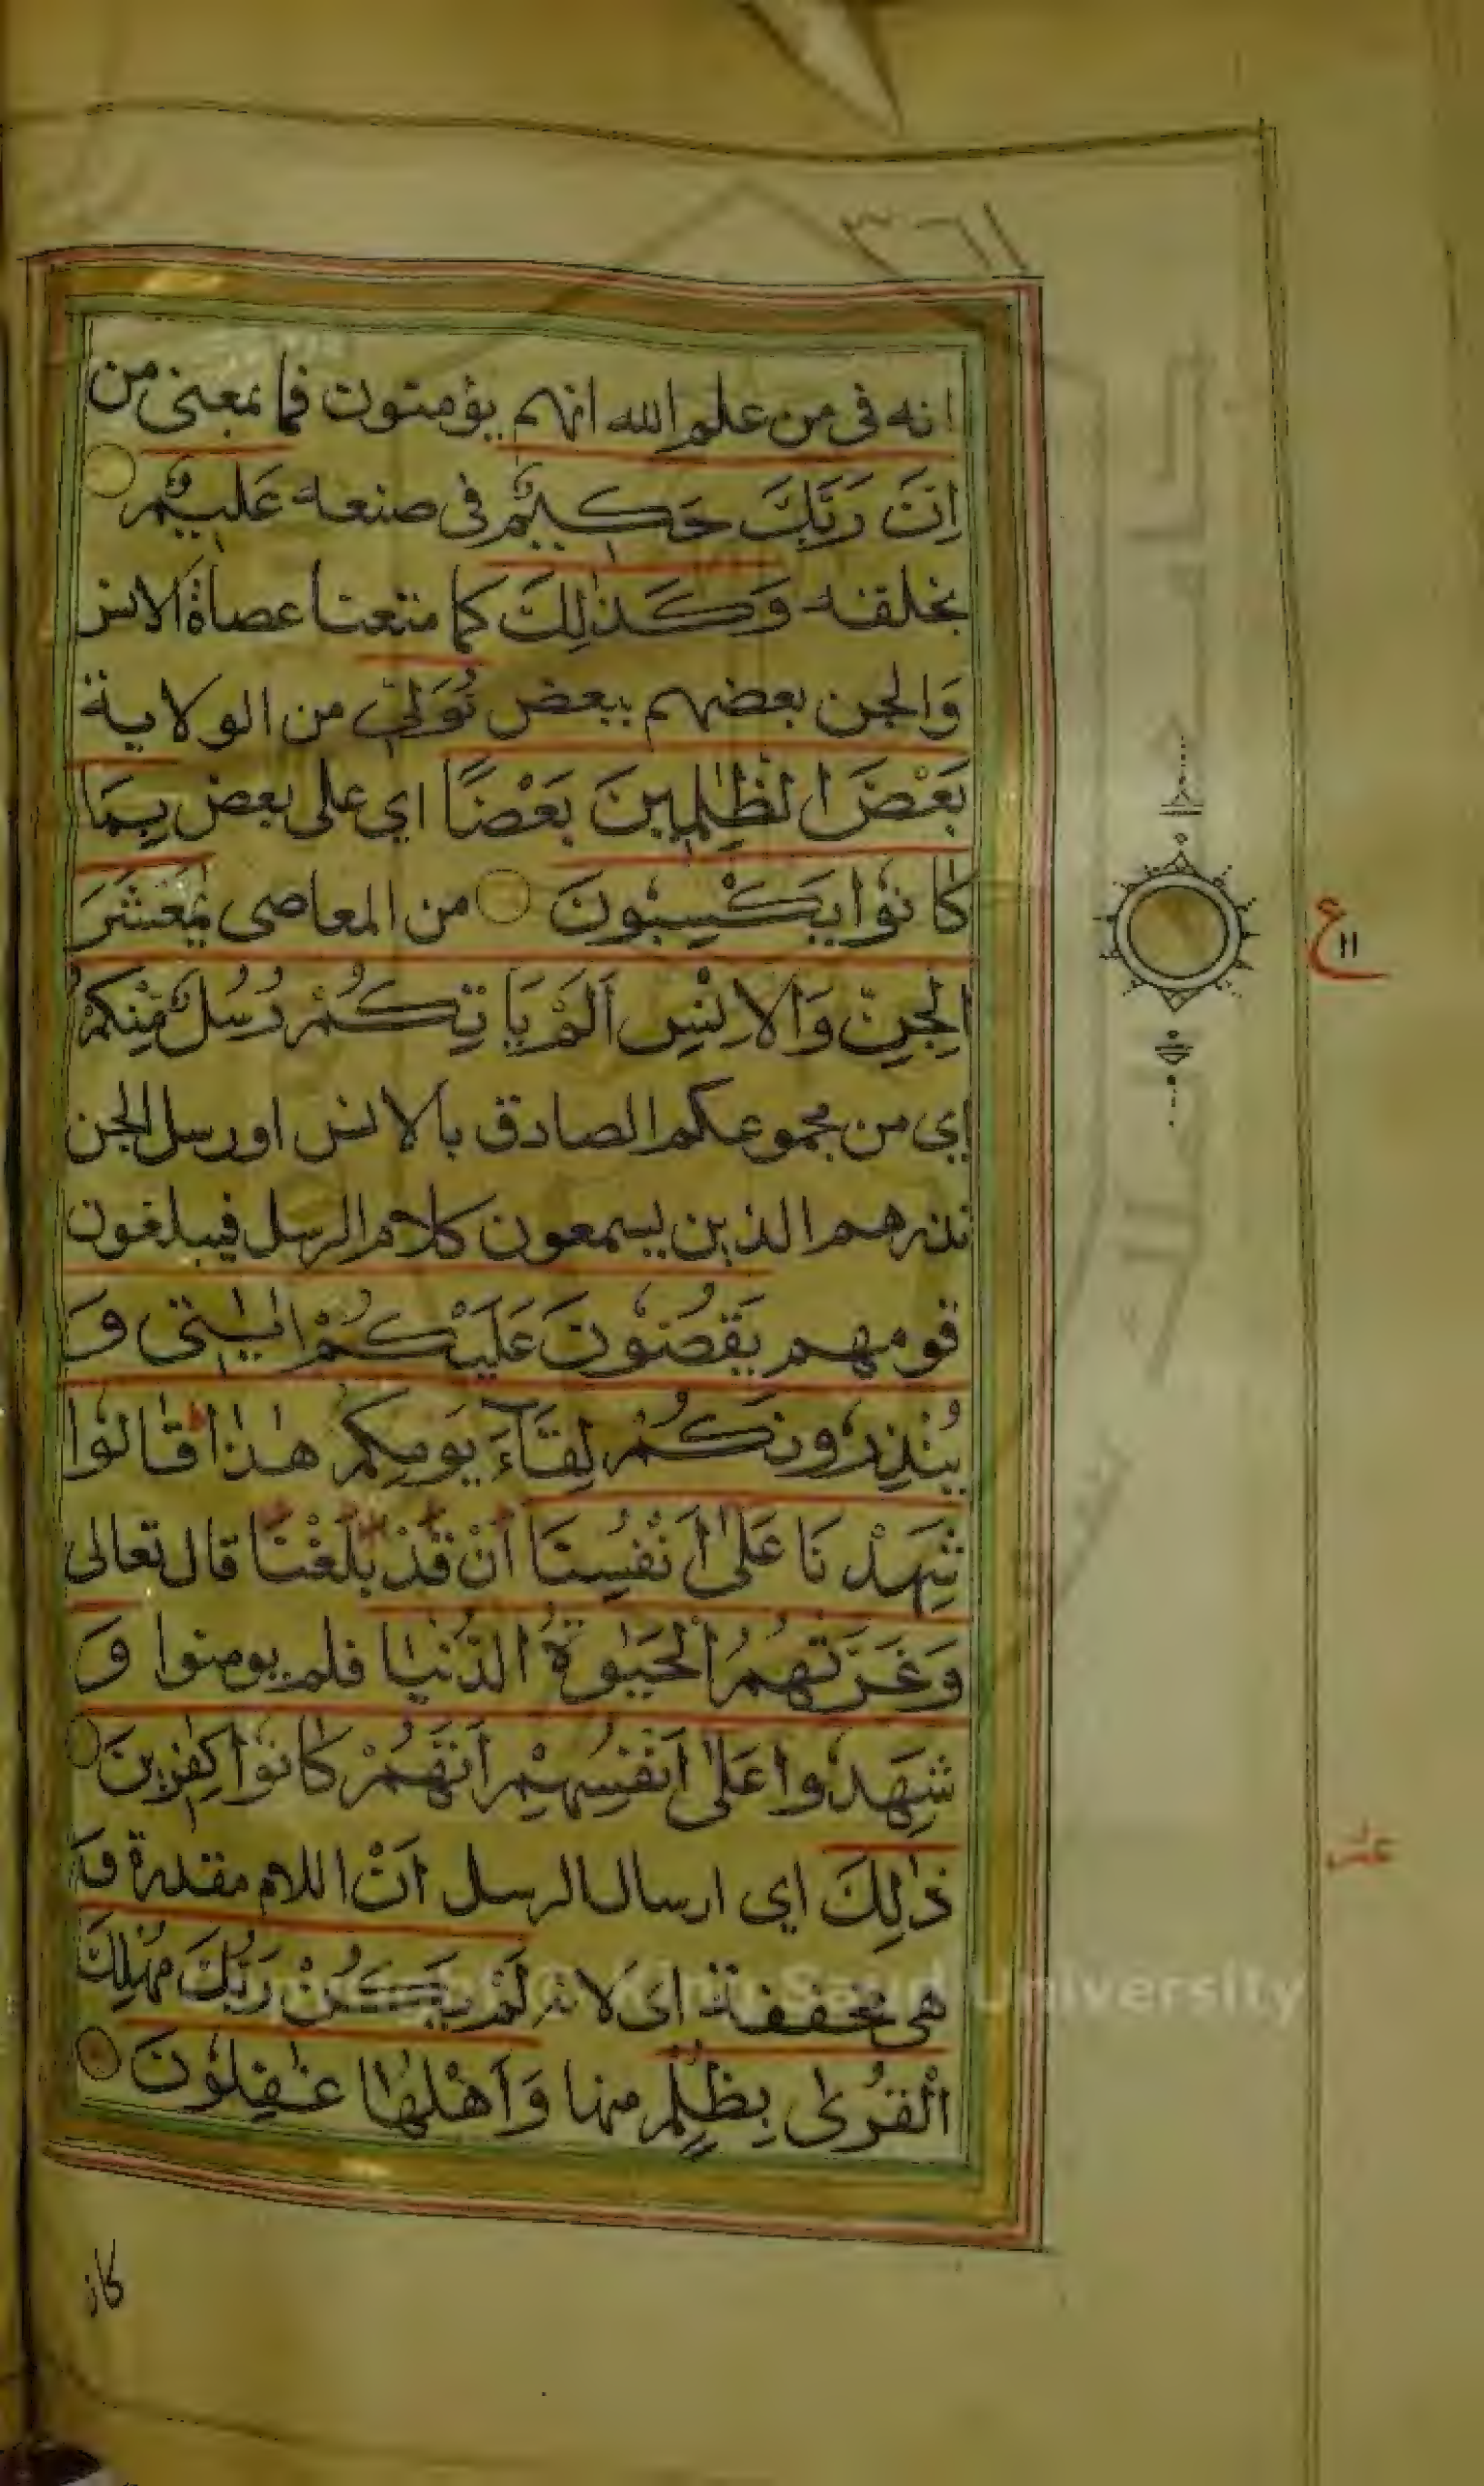 ٣٦١
انه فى من علم الله انهم يؤمنون فما بمعنى من
اِنَّ رَبَّكَ حَكِيْمٌ فى صنعه عَلِيْمٌ
بخلقه وَكَذٰلِكَ كما متعنا عصاة الانس
وَالجن بعضهم ببعض نُوَلِّيْ من الولاية
بَعْضَ الظّٰلِمِيْنَ بَعْضًا اي على بعض بِمَا
كَانُوْا يَكْسِبُوْنَ من المعاصى يٰمَعْشَرَ
الْجِنِّ وَالْاِنْسِ اَلَمْ يَاْتِكُمْ رُسُلٌ مِّنْكُمْ
اي من مجموعكم الصادق بالانس او رسل الجن
نذرهم الذين يسمعون كلام الرسل فيبلغون
قومهم يَقُصُّوْنَ عَلَيْكُمْ اٰيٰتِى وَ
يُنْذِرُوْنَكُمْ لِقَآءَ يَوْمِكُمْ هٰذَا قَالُوْا
شَهِدْنَا عَلٰى اَنْفُسِنَا اَنْ قَدْ بَلَغْنَا قال تعالى
وَغَرَّتْهُمُ الْحَيٰوةُ الدُّنْيَا فلم يومنوا وَ
شَهِدُوْا عَلٰى اَنْفُسِهِمْ اَنَّهُمْ كَانُوْا كٰفِرِيْنَ
ذٰلِكَ اي ارسال الرسل اَنْ اللام مقدرة وَ
هى مخففة اى لانه لَمْ يَكُنْ رَبُّكَ مُهْلِكَ
الْقُرٰى بِظُلْمٍ منها وَاَهْلُهَا غٰفِلُوْنَ
ع
١١
King Saud University